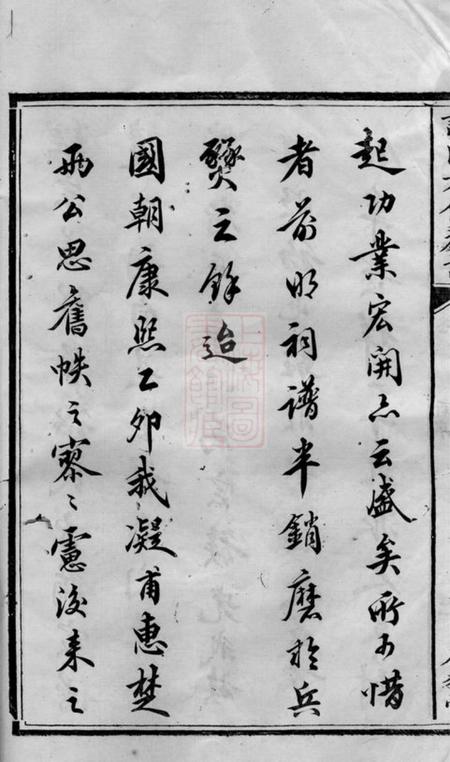 起功業宏開亦云盛矣所可惜
者前明祠譜半銷磨於兵
燹之餘迨
國朝康熙乙卯我凝甫惠楚
兩公思舊帙之寥〻慮後來之